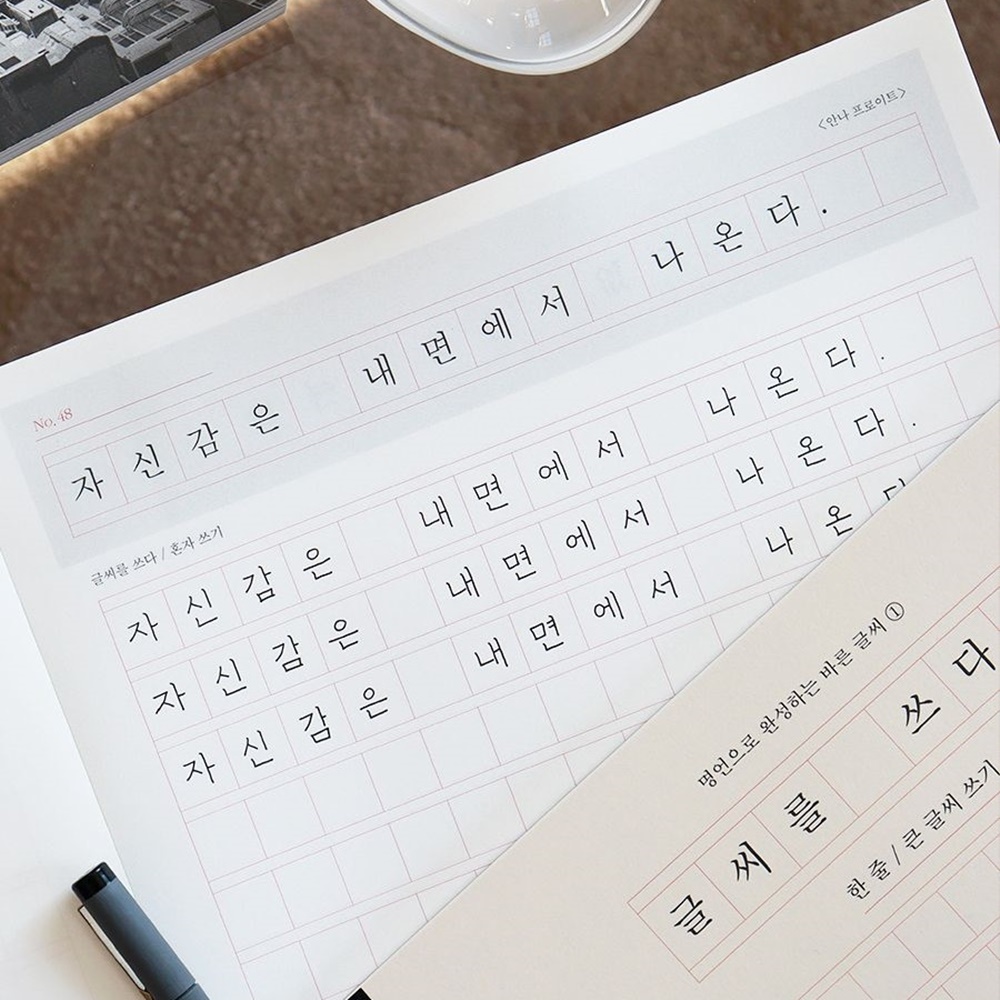 <안나 프로이트>
No. 48
자신감은 내면에서 나온다.
글씨를 쓰다 / 혼자 쓰기
자신감은 내면에서 나온다.
자신감은 내면에서 나온다.
자신감은 내면에서 나온
명언으로 완성하는 바른 글씨 ①
글씨를 쓰다
한 줄 / 큰 글씨 쓰기